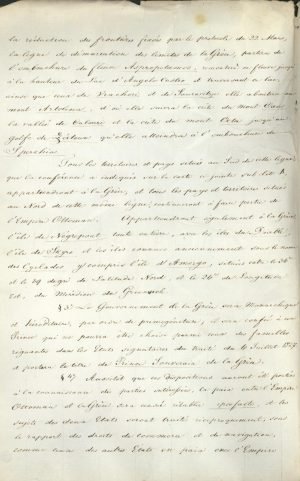 la réduction des frontières fixées par le protocole du 22 Mars,
la ligne de démarcation des limites de la Grèce, partira de
l'embouchure du fleuve Aspropotamos, remontera ce fleuve jusqu'à
la hauteur du lac d'Angelo Castro et traversant ce lac,
ainsi que ceux de Vrachori et de Saurovitza elle aboutira au
mont Artolina, d'où elle suivra la crête du mont Oxas,
la vallée de Calouri et la crête du mont Oeta jusqu'au
golfe de Zeitoun qu'elle atteindra à l'embouchure du
Sperchius.
Tous les territoires et pays situés au Sud de cette ligne
que la conférence a indiquée sur la carte ci jointe
appartiendront à la Grèce, et tous les pays et territoires situés
au Nord de cette même ligne, continueront à faire partie de
l'Empire Ottoman. Appartiendront également à la Grèce
l'île de Négrepont toute entière, avec les îles du Diable,
l'île de Skyro et les îles connues anciennement sous le nom
des Cyclades, y compris l'île d'Amorgo, situées entre le 36e
et le 39 degré de latitude Nord et le 26e de longitude
Est, du Méridien de Greenwich.
§ 3o Le Gouvernement de la Grèce sera Monarchique
et héréditaire, par ordre de primogéniture, il sera confié à un
Prince qui ne pourra être choisi parmi ceux des familles
régnantes dans les Etats signataires du traité du 6 Juillet 1827
et portera le titre de Prince Souverain de la Grèce.
§ 4o Aussitôt que ces dispositions auront été portées
à la connaissance des parties intéressées, la paix entre l'Empire
Ottoman et la Grèce sera censée rétablie ipso facto, et les
sujets des deux Etats seront traités réciproquement, sous
le rapport des droits de commerce et de navigation,
comme ceux des autres Etats en paix avec l'Empire